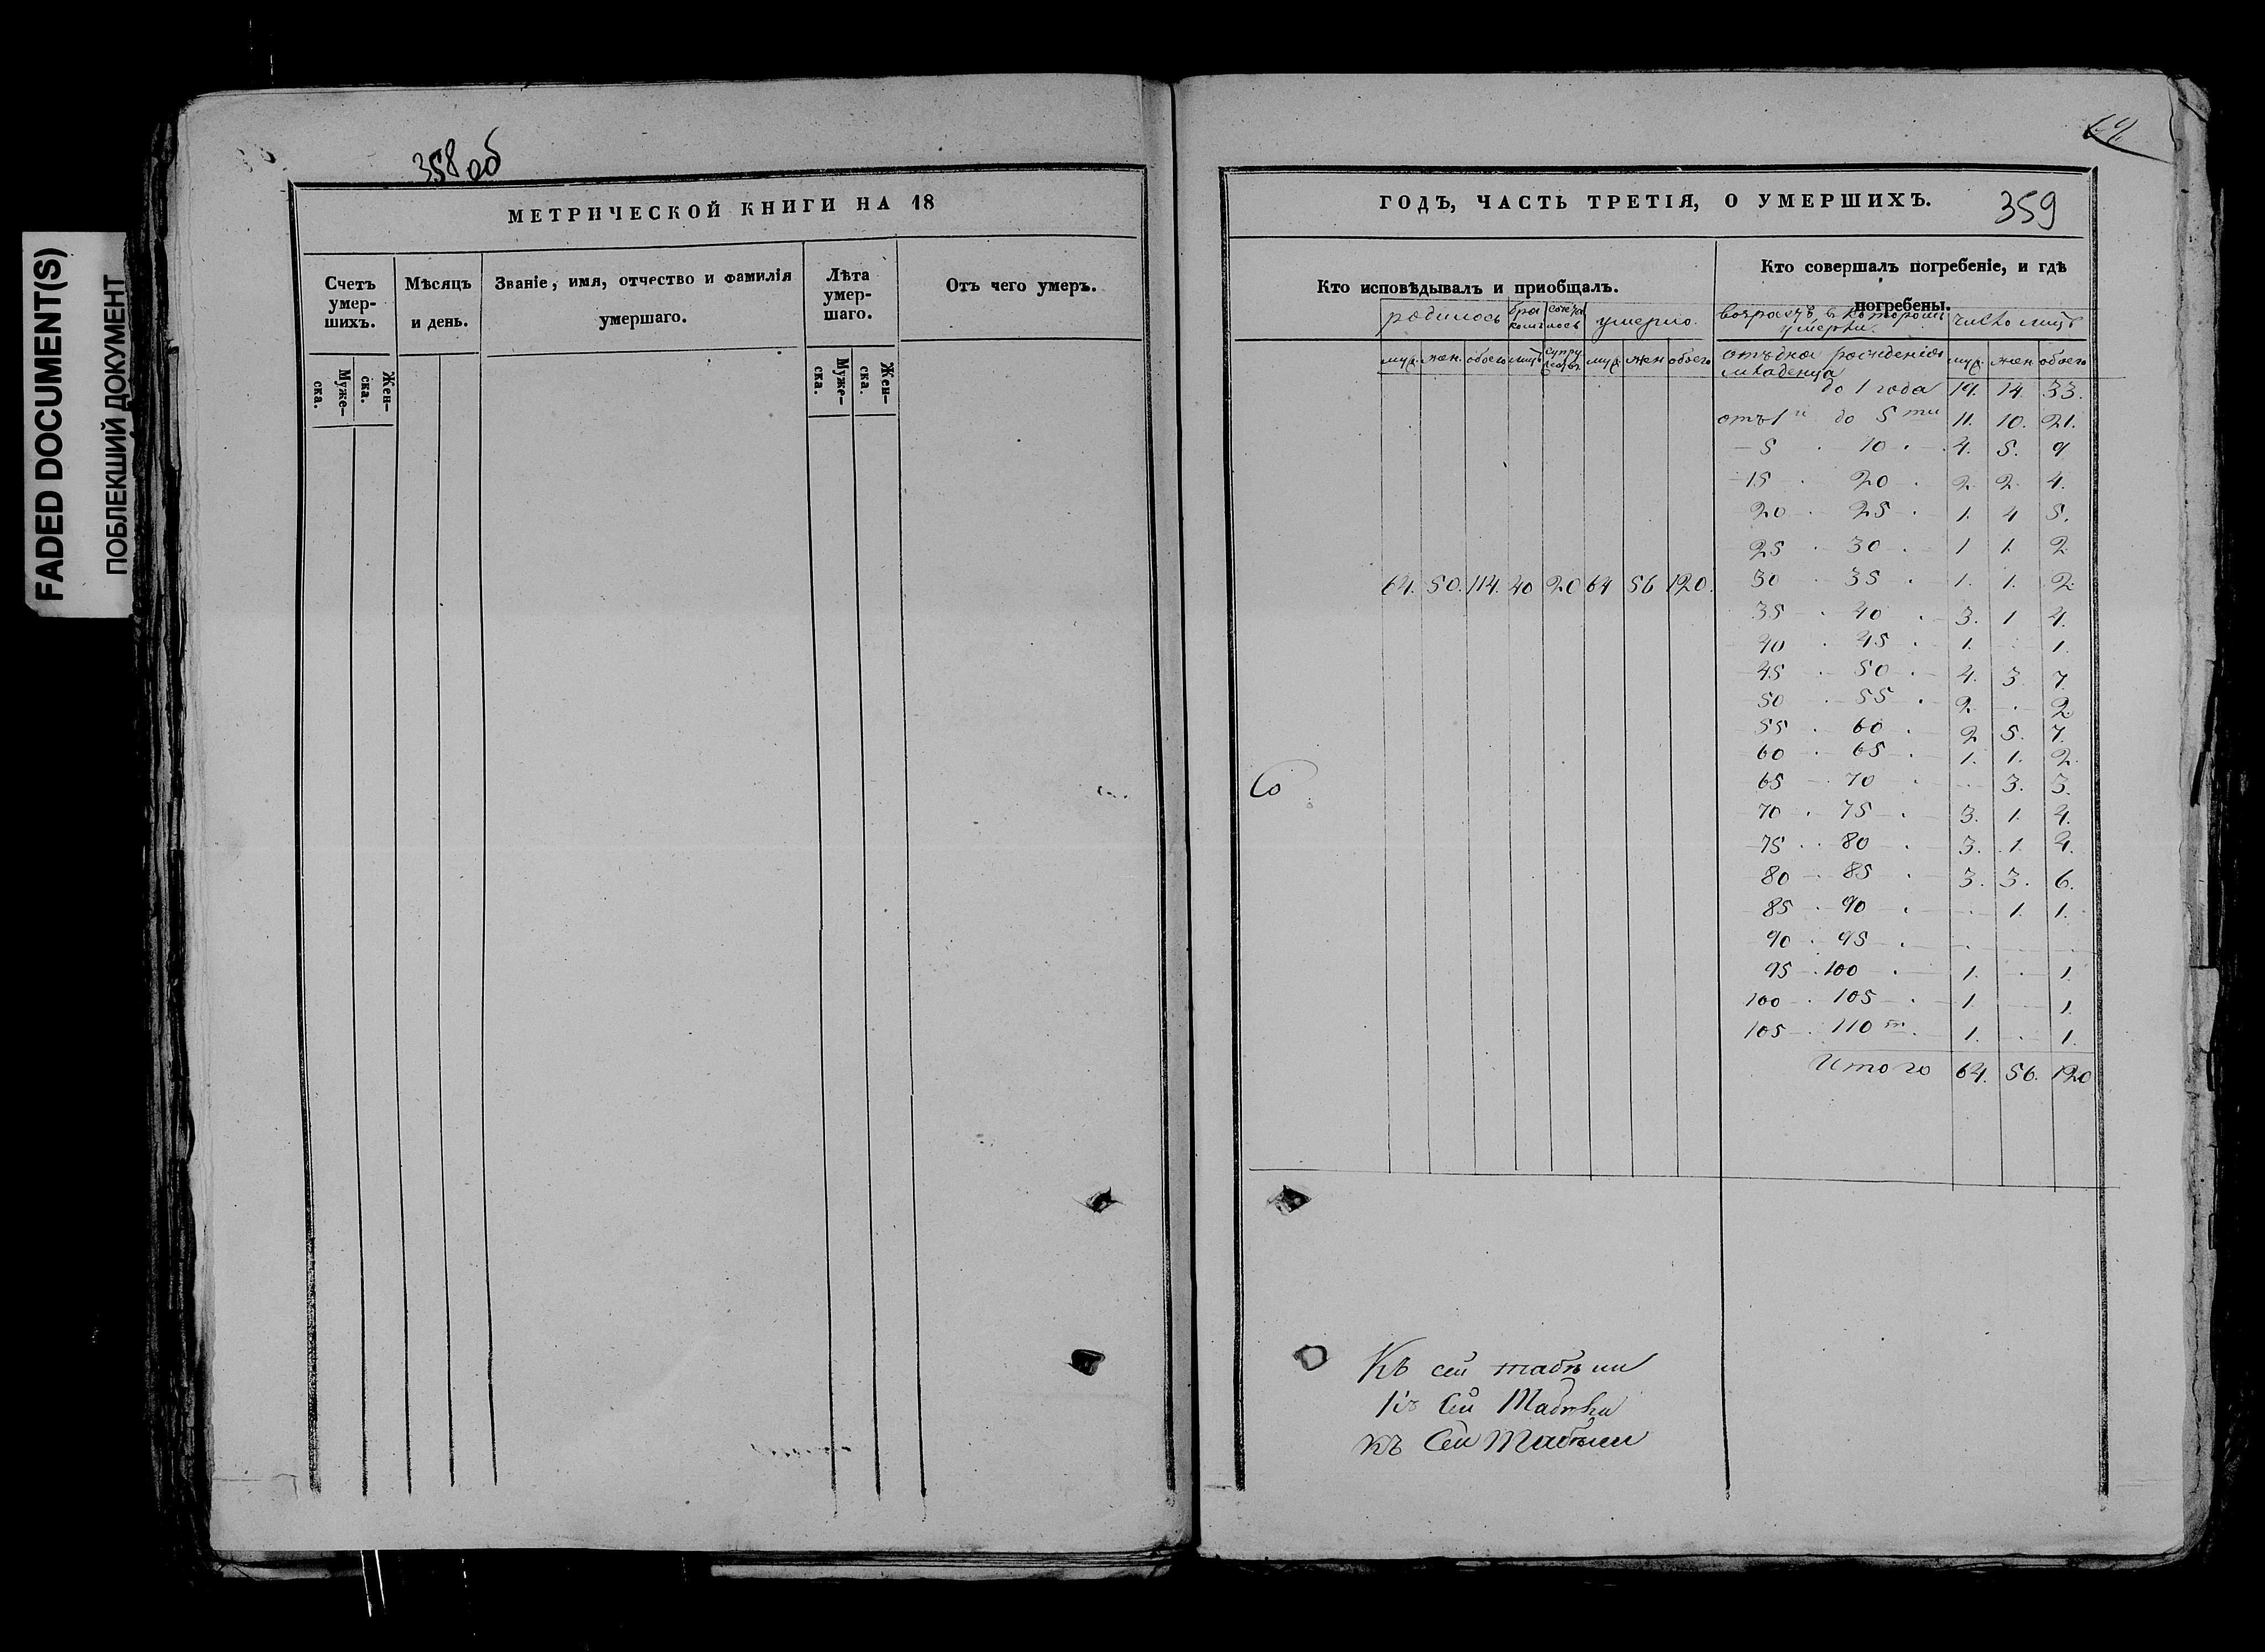 FADED DOCUMENT(S)
ПОБЛЕКШИЙ ДОКУМЕНТ
358 об
МЕТРИЧЕСКОЙ КНИГИ НА 18
Счетъ умер-шихъ.
Мѣсяцъ и день.
Званіе, имя, отчество и фамилія умершаго.
Лѣта умер-шаго.
Отъ чего умеръ.
Муже-ска.
Жен-ска.
Муже-ска.
Жен-ска.
ГОДЪ, ЧАСТЬ ТРЕТІЯ, О УМЕРШИХЪ.
359
Кто исповѣдывалъ и приобщалъ.
Кто совершалъ погребеніе, и гдѣ погребены.
родилось
умерло.
возрастъ в которомъ умерли.
число лицъ
муж. жен. обоего лицъ супружествъ муж. жен обоего
отъ дня рожденія младенца
муж. жен обоего
до 1 года 19. 14. 33.
отъ 1 до 5ти 11. 10. 21.
5 10 4. 5. 9
15 20 2. 2. 4.
20 25 1. 4 5.
25 30 1 1. 2
64. 50. 114. 40 20 64 56 120.
30 35 1. 1. 2.
35 40 3. 1 4.
40 45 1. 1.
45 50 4. 3 7.
50 55 2. 2.
55 60 2 5. 7.
60 65 1. 1. 2.
65 70 3. 3.
70 75 3. 1. 4.
75 80 3. 1. 4.
80 85 3. 3. 6.
85 90 1. 1.
90 95
95 100 1. 1
100 105 1. 1.
105 110 1. 1.
Итого 64. 56. 120
Со
Къ сей табели
Къ Сей Табели
къ Сей Табели